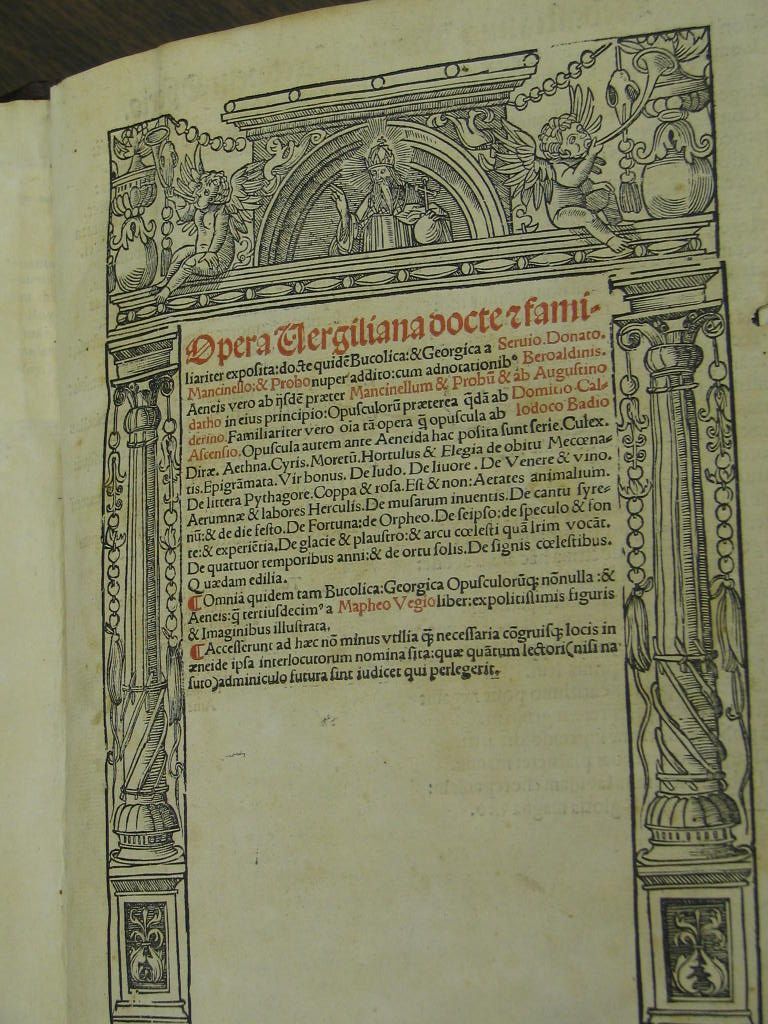 Opera Vergiliana docte ⁊ fami-
liariter exposita: docte quidē Bucolica: & Georgica a Seruio. Donato.
Mancinello: & Probo nuper addito: cum adnotationibꝰ Beroaldinis.
Aeneis vero ab ijsdē præter Mancinellum & Probū & ab Augustino
datho in eius principio: Opusculorū præterea q̄dā ab Domitio Cal-
derino. Familiariter vero oīa tā opera q̄ opuscula ab Iodoco Badio
Ascensio. Opuscula autem ante Aeneida hac posita sunt serie. Culex.
Diræ. Aethna. Cyris. Moretū. Hortulus & Elegia de obitu Mecœna-
tis. Epigrāmata. Vir bonus. De ludo. De liuore. De Venere & vino.
De littera Pythagore. Coppa & rosa. Est & non: Aetates animalium.
Aerumnæ & labores Herculis. De musarum inuentis. De cantu syre-
nū: & de die festo. De Fortuna: de Orpheo. De seipso: de speculo & fon
te: & experiētia. De glacie & plaustro: & arcu cœlesti quā Irim vocāt.
De quattuor temporibus anni: & de ortu solis. De signis cœlestibus.
Quædam edilia.
¶ Omnia quidem tam Bucolica: Georgica Opusculorūqꝫ nōnulla: &
Aeneis: q̄ tertiusdecimꝰ a Mapheo Vegio liber: expolitissimis figuris
& Imaginibus illustrata.
¶ Accesserunt ad hæc nō minus vtilia q̄ꝫ necessaria cōgruisqꝫ locis in
æneide ipsa interlocutorum nomina sita: quæ quātum lectori (nisi na
suto) adminiculo futura sint iudicet qui perlegerit.